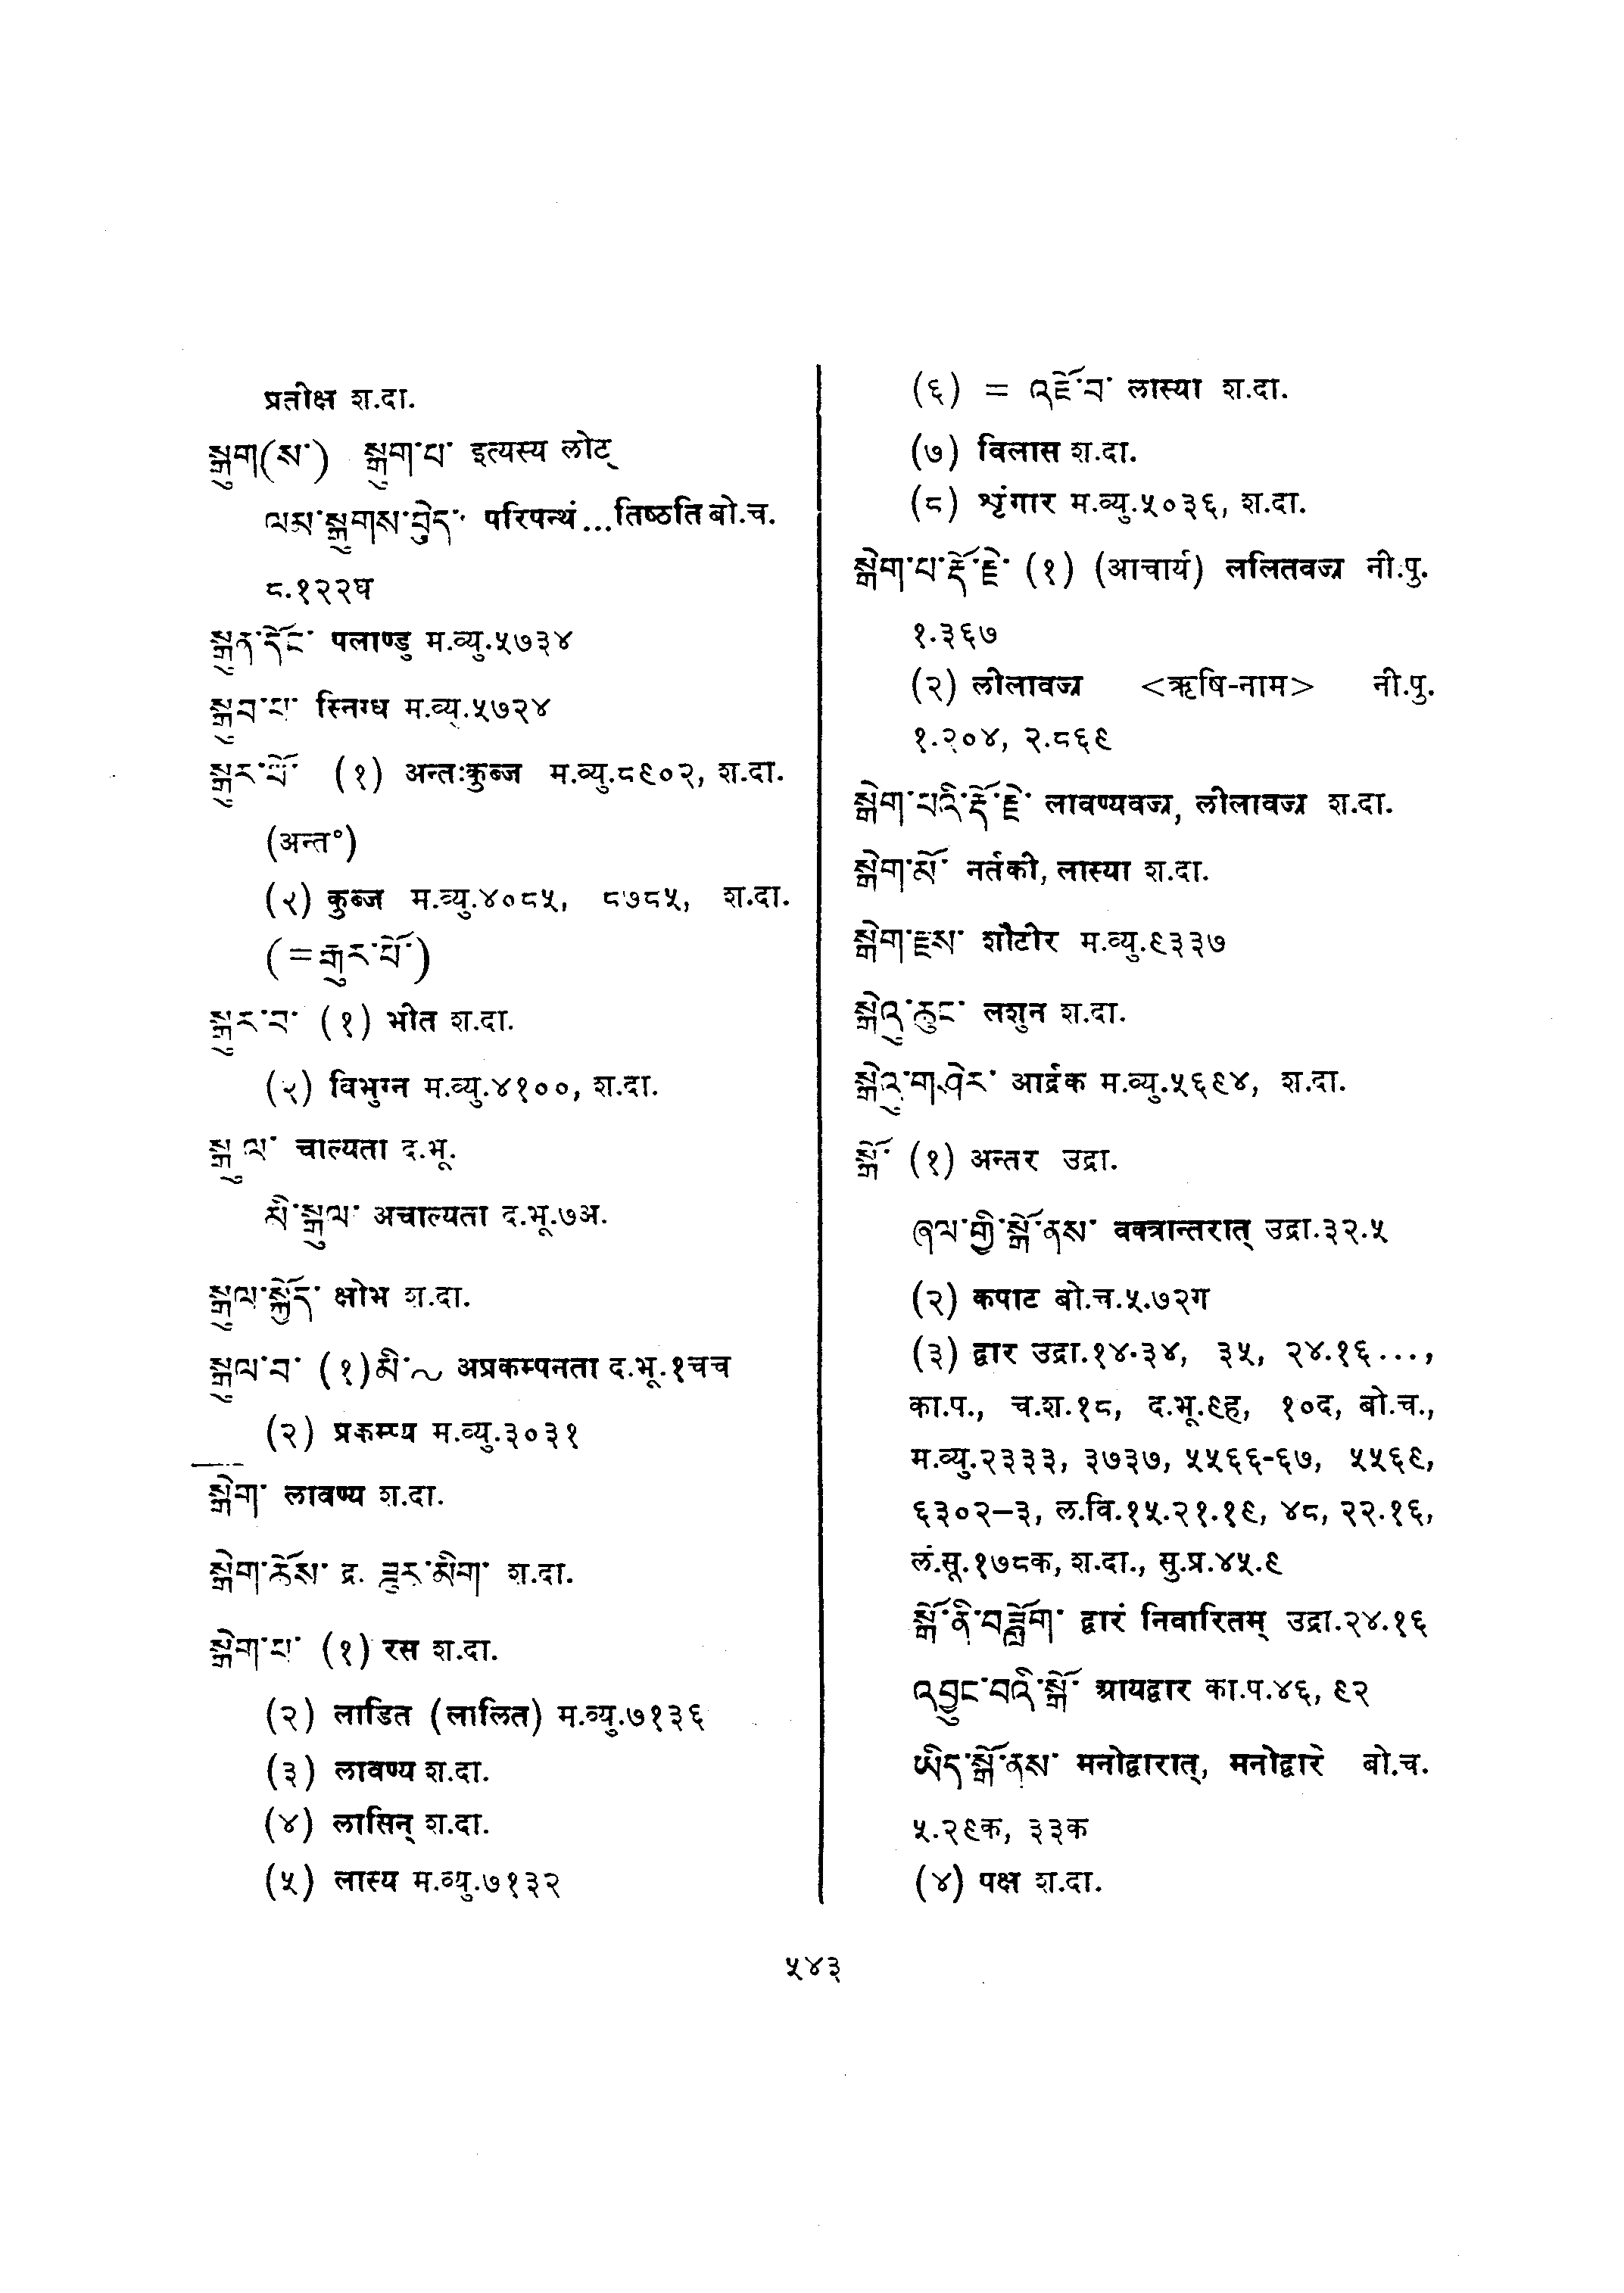 प्रतीक्ष श.दा.
སྒུག(ས་) སྒུག་པ་ इत्यस्य लोट्
ལས་སྒུགས་བྱེད་ परिपन्थं...तिष्ठति बो.च.
८.१२२घ
སྒུན་དོང་ पलाण्डु म.व्यु.५७३४
སྒུབ་པ་ स्निग्ध म.व्यु.५७२४
སྒུར་པོ་ (१) अन्तःकुब्ज म.व्यु.८९०२, श.दा.
(अन्त°)
(२) कुब्ज म.व्यु.४०८५, ८७८५, श.दा.
(=རྒུར་པོ་)
སྒུར་བ་ (१) भीत श.दा.
(२) विभुग्न म.व्यु.४१००, श.दा.
སྒུལ་ चाल्यता द.भू.
མི་སྒུལ་ अचाल्यता द.भू.७अ.
སྒུལ་སྐྱོད་ क्षोभ श.दा.
སྒུལ་བ་ (१) མི་~ अप्रकम्पनता द.भू.१चच
(२) प्रकम्प्य म.व्यु.३०३१
སྒེག་ लावण्य श.दा.
སྒེག་ཆོས་ द्र. ཟུར་མིག་ श.दा.
སྒེག་པ་ (१) रस श.दा.
(२) लाडित (लालित) म.व्यु.७१३६
(३) लावण्य श.दा.
(४) लासिन् श.दा.
(५) लास्य म.व्यु.७१३२
(६) = འཇོ་བ་ लास्या श.दा.
(७) विलास श.दा.
(८) शृंगार म.व्यु.५०३६, श.दा.
སྒེག་པ་རྡོ་རྗེ་ (१) (आचार्य) ललितवज्र नी.पु.
१.३६७
(२) लीलावज्र <ऋषि-नाम> नी.पु.
१.२०४, २.८६९
སྒེག་པའི་རྡོ་རྗེ་ लावण्यवज्र, लीलावज्र श.दा.
སྒེག་མོ་ नर्तकी, लास्या श.दा.
སྒེག་རྫས་ शौटीर म.व्यु.९३३७
སྒེའུ་ཆུང་ लशुन श.दा.
སྒེའུ་ག་ཤེར་ आर्द्रक म.व्यु.५६९४, श.दा.
སྒོ་ (१) अन्तर उद्रा.
ཞལ་གྱི་སྒོ་ནས་ वक्त्रान्तरात् उद्रा.३२.५
(२) कपाट बो.च.५.७२ग
(३) द्वार उद्रा.१४.३४, ३५, २४.१६...,
का.प., च.श.१८, द.भू.९ह, १०द, बो.च.,
म.व्यु.२३३३, ३७३७, ५५६६-६७, ५५६९,
६३०२–३, ल.वि.१५.२१.१९, ४८, २२.१६,
लं.सू.१७८क, श.दा., सु.प्र.४५.९
སྒོ་ནི་བཟློག་ द्वारं निवारितम् उद्रा.२४.१६
འབྱུང་བའི་སྒོ་ आयद्वार का.प.४६, ९२
ཡིད་སྒོ་ནས་ मनोद्वारात्, मनोद्वारे बो.च.
५.२९क, ३३क
(४) पक्ष श.दा.
५४३